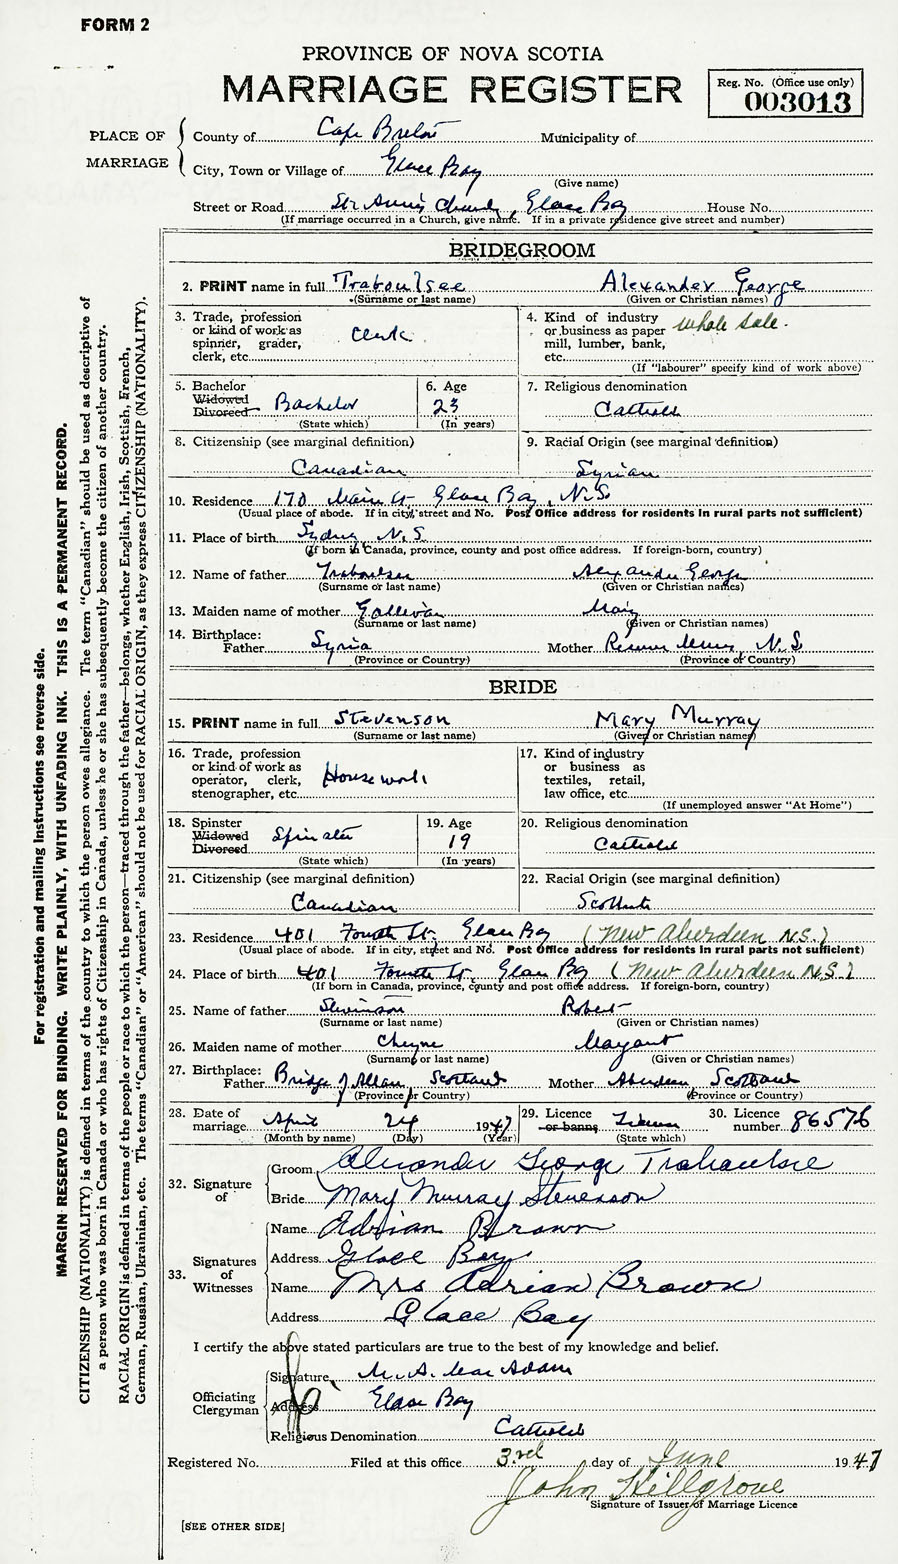 FORM 2
PROVINCE OF NOVA SCOTIA
MARRIAGE REGISTER
Reg. No. (Office use only)
003013
PLACE OF MARRIAGE
County of Cape Breton Municipality of
City, Town or Village of Glace Bay
(Give name)
Street or Road St. Ann's Church, Glace Bay House No.
(If marriage occurred in a Church, give name. If in a private residence give street and number)
BRIDEGROOM
2. PRINT name in full Traboulsee Alexander George
(Surname or last name) (Given or Christian names)
3. Trade, profession or kind of work as spinner, grader, clerk, etc. Clerk
4. Kind of industry or business as paper mill, lumber, bank, etc. whole sale.
(If "labourer" specify kind of work above)
5. Bachelor Widowed Divorced Bachelor
(State which)
6. Age 23
(In years)
7. Religious denomination
Catholic
8. Citizenship (see marginal definition)
Canadian
9. Racial Origin (see marginal definition)
Syrian
10. Residence 170 Main St. Glace Bay, N.S.
(Usual place of abode. If in city, street and No. Post Office address for residents in rural parts not sufficient)
11. Place of birth Sydney, N.S.
(If born in Canada, province, county and post office address. If foreign-born, country)
12. Name of father Traboulsee Alexander George
(Surname or last name) (Given or Christian names)
13. Maiden name of mother Gallivan Mary
(Surname or last name) (Given or Christian names)
14. Birthplace:
Father Syria Mother Reserve Mines, N.S.
(Province or Country) (Province or Country)
BRIDE
15. PRINT name in full Stevenson Mary Murray
(Surname or last name) (Given or Christian names)
16. Trade, profession or kind of work as operator, clerk, stenographer, etc. Housework
17. Kind of industry or business as textiles, retail, law office, etc.
(If unemployed answer "At Home")
18. Spinster Widowed Divorced Spinster
(State which)
19. Age 19
(In years)
20. Religious denomination
Catholic
21. Citizenship (see marginal definition)
Canadian
22. Racial Origin (see marginal definition)
Scottish
23. Residence 401 Fourth St. Glace Bay (New Aberdeen N.S.)
(Usual place of abode. If in city, street and No. Post Office address for residents in rural parts not sufficient)
24. Place of birth 401 Fourth St, Glace Bay (New Aberdeen N.S.)
(If born in Canada, province, county and post office address. If foreign-born, country)
25. Name of father Stevenson Robert
(Surname or last name) (Given or Christian names)
26. Maiden name of mother Cheyne Margaret
(Surname or last name) (Given or Christian names)
27. Birthplace:
Father Bridge of Allan, Scotland Mother Aberdeen, Scotland
(Province or Country) (Province or Country)
28. Date of marriage April 24 1947
(Month by name) (Day) (Year)
29. Licence or banns License
(State which)
30. Licence number 86576
32. Signature of
Groom Alexander George Traboulsee
Bride Mary Murray Stevenson
33. Signatures of Witnesses
Name Adrian Brown
Address Glace Bay
Name Mrs Adrian Brown
Address Glace Bay
I certify the above stated particulars are true to the best of my knowledge and belief.
Officiating Clergyman
Signature M. A. MacAdam
Address Glace Bay
Religious Denomination Catholic
Registered No. Filed at this office 3rd day of June 1947
John Hillgrove
Signature of Issuer of Marriage Licence
[SEE OTHER SIDE]
For registration and mailing instructions see reverse side.
MARGIN RESERVED FOR BINDING. WRITE PLAINLY, WITH UNFADING INK. THIS IS A PERMANENT RECORD.
CITIZENSHIP (NATIONALITY) is defined in terms of the country to which the person owes allegiance. The term "Canadian" should be used as descriptive of
a person who was born in Canada or who has rights of Citizenship in Canada, unless he or she has subsequently become the citizen of another country.
RACIAL ORIGIN is defined in terms of the people or race to which the person—traced through the father—belongs, whether English, Irish, Scottish, French,
German, Russian, Ukrainian, etc. The terms "Canadian" or "American" should not be used for RACIAL ORIGIN, as they express CITIZENSHIP (NATIONALITY).